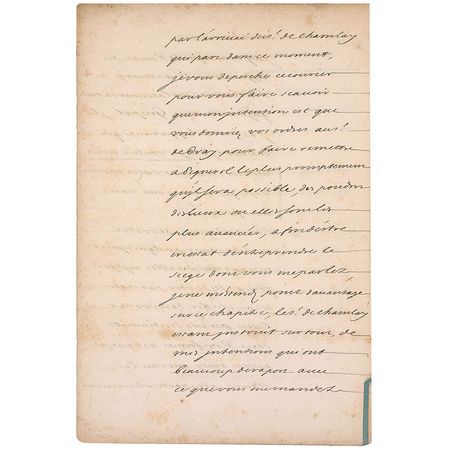 par l'arrivée du sr. de chamlay
qui part dans ce moment,
je vous depesche ce courier
pour vous faire scavoir
que mon intention est que
vous donniez vos ordres au sr.
de Vray pour faire remettre
a Pignerol le plus promptement
qu'il sera possible, des poudres
des lieux ou elles sont les
plus avancées, afin d'estre
en estat d'entreprendre le
siege dont vous me parlez,
je ne m'estendz point davantage
sur ce chapitre, le sr. de chamlay
estant instruit sur tout, de
mes intentions qui ont
beaucoup de raport avec
ce que vous me mandez